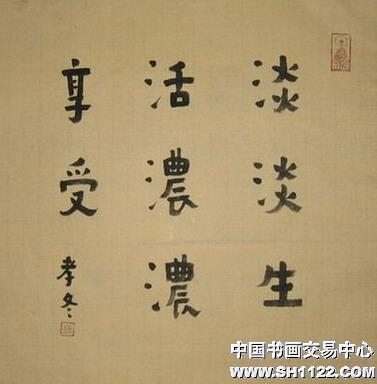 淡淡生
活濃濃
享受
孝冬
中国书画交易中心
www.SH1122.com